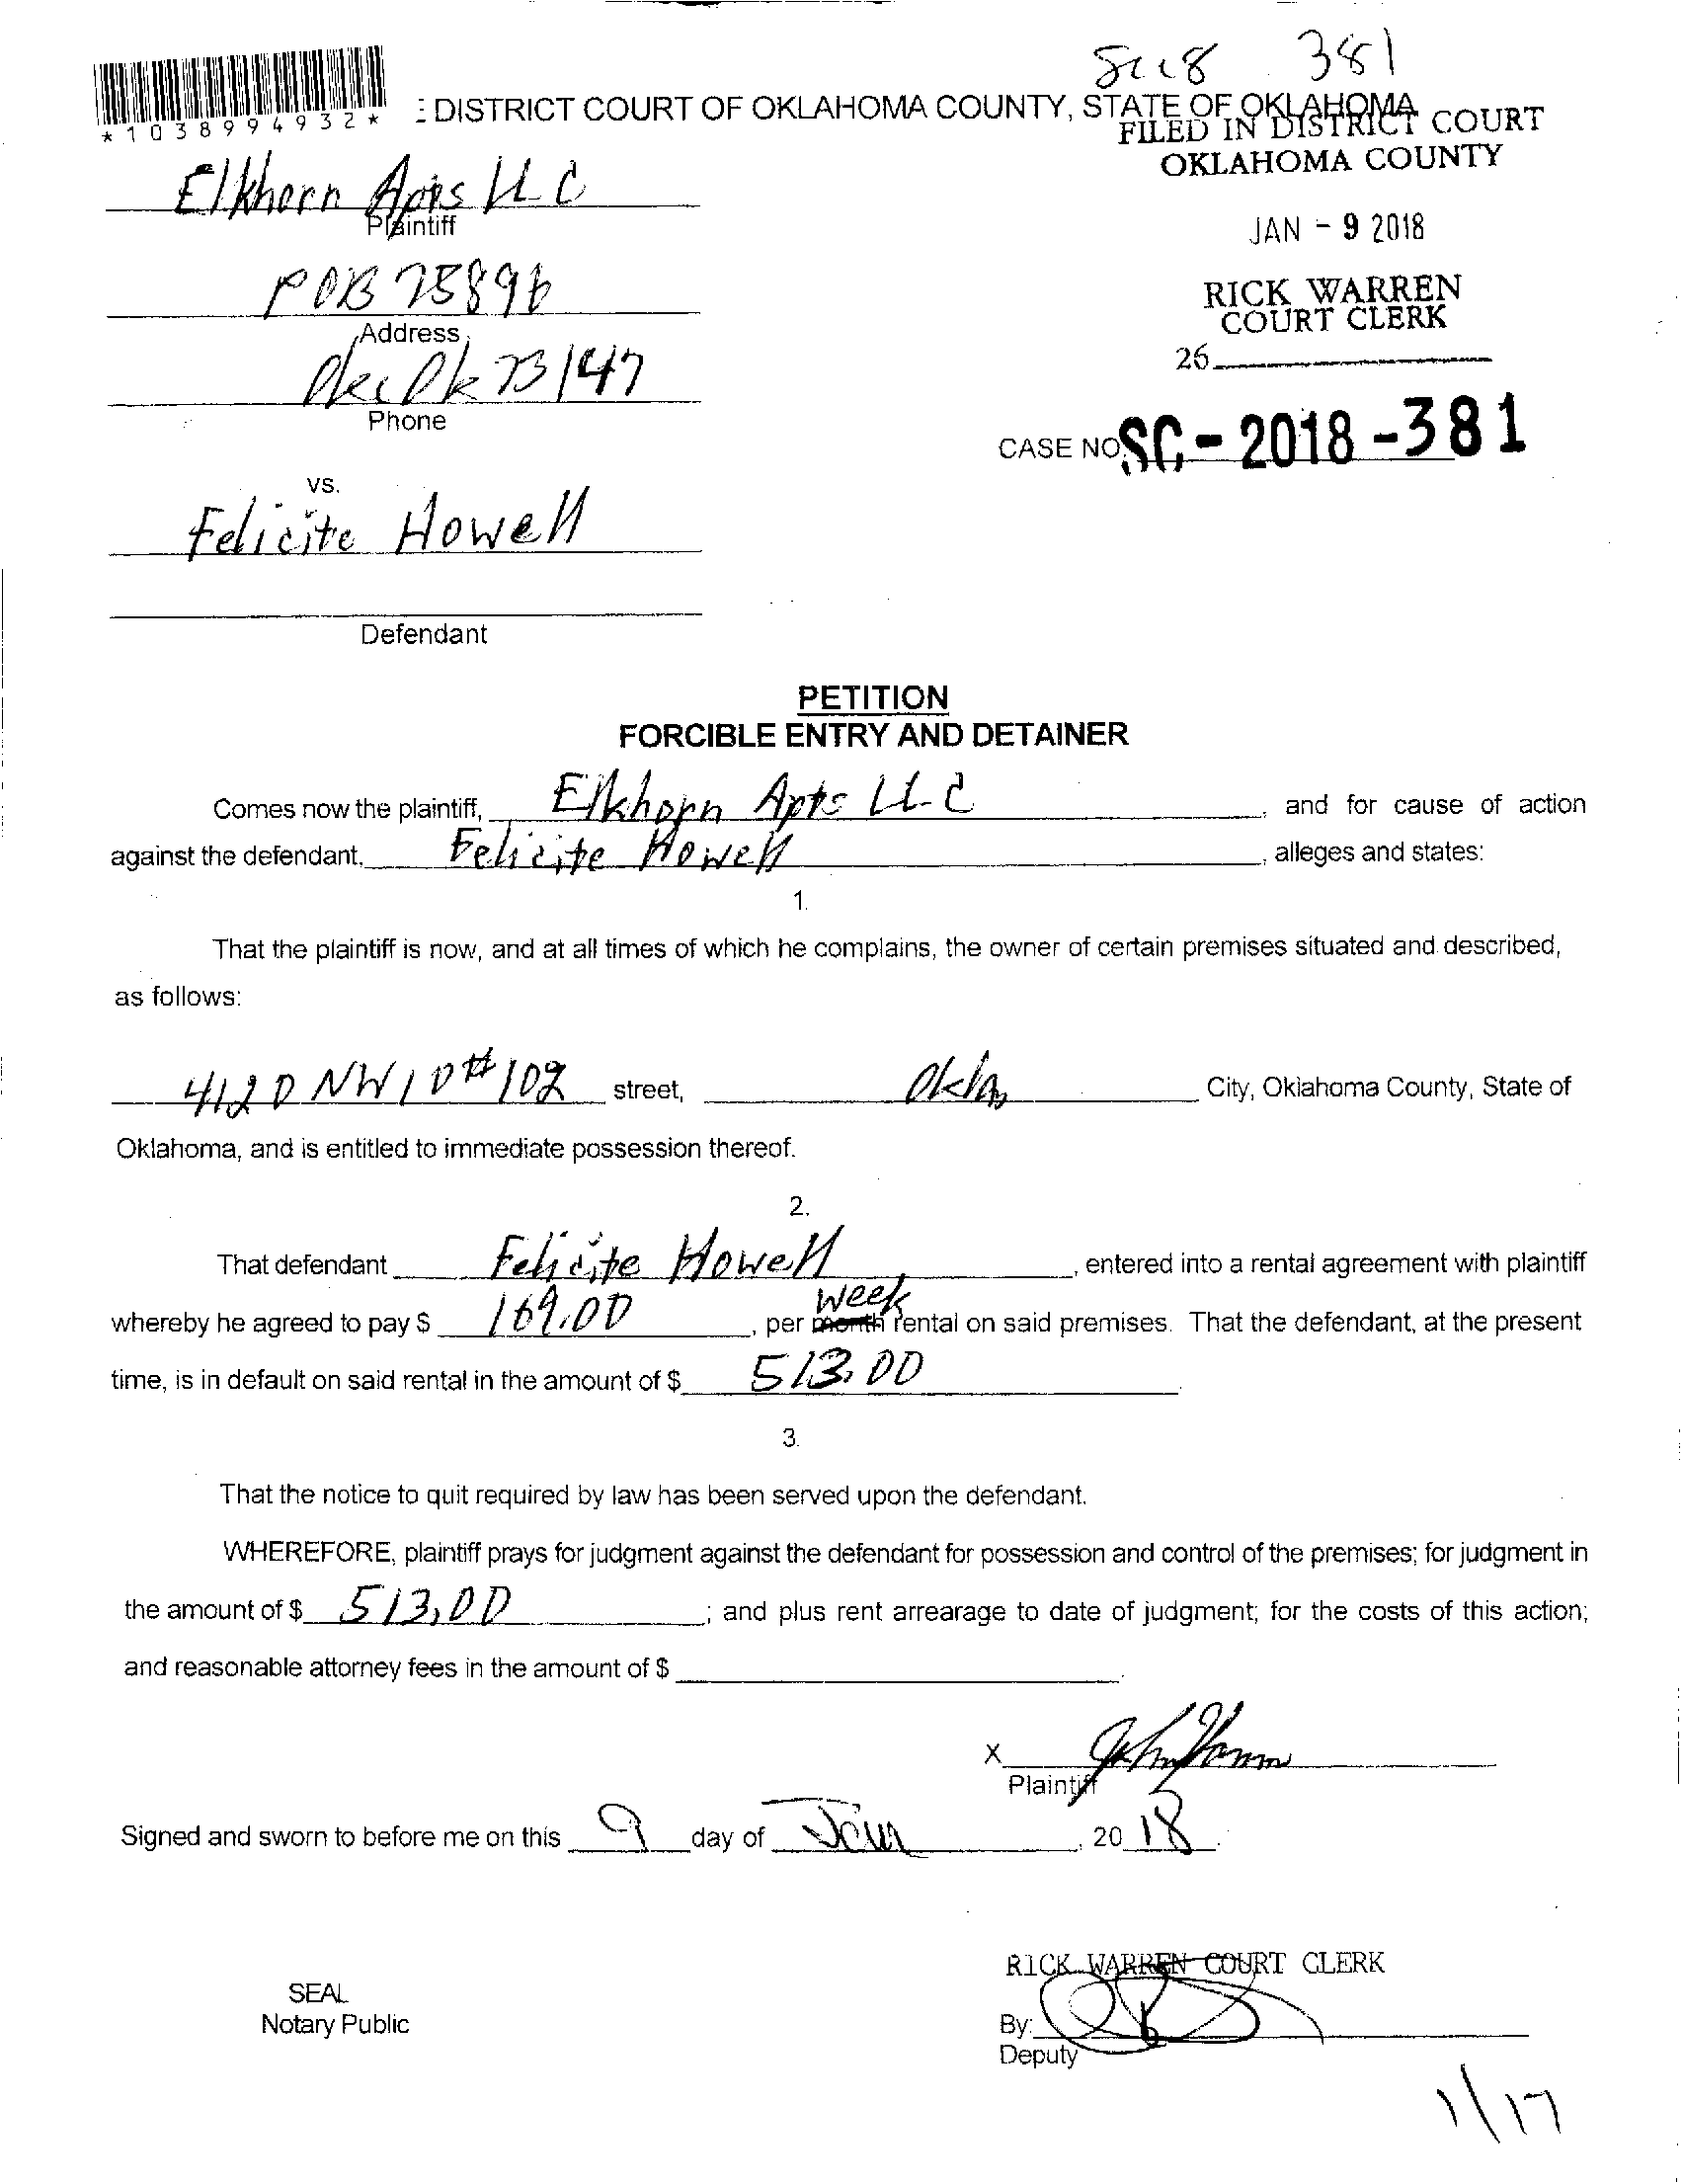 381
*1038994932*
: DISTRICT COURT OF OKLAHOMA COUNTY, STATE OF OKLAHOMA
FILED IN DISTRICT COURT
OKLAHOMA COUNTY
Elkhorn Apts LLC
Plaintiff
JAN - 9 2018
POB 75896
Address
RICK WARREN
COURT CLERK
26
Okc Ok 73147
Phone
CASE NO. SC - 2018 - 381
VS.
Felicite Howell
Defendant
PETITION
FORCIBLE ENTRY AND DETAINER
Comes now the plaintiff, Elkhorn Apts LLC, and for cause of action
against the defendant, Felicite Howell, alleges and states:
1.
That the plaintiff is now, and at all times of which he complains, the owner of certain premises situated and described,
as follows:
4120 NW 10 # 102 street, Okla City, Oklahoma County, State of
Oklahoma, and is entitled to immediate possession thereof.
2.
That defendant Felicite Howell, entered into a rental agreement with plaintiff
whereby he agreed to pay $ 169.00, per month week rental on said premises. That the defendant, at the present
time, is in default on said rental in the amount of $ 513.00.
3.
That the notice to quit required by law has been served upon the defendant.
WHEREFORE, plaintiff prays for judgment against the defendant for possession and control of the premises; for judgment in
the amount of $ 513.00; and plus rent arrearage to date of judgment; for the costs of this action;
and reasonable attorney fees in the amount of $
X
Plaintiff
Signed and sworn to before me on this 9 day of Jan, 20 18.
RICK WARREN COURT CLERK
SEAL
Notary Public
By:
Deputy
1/17